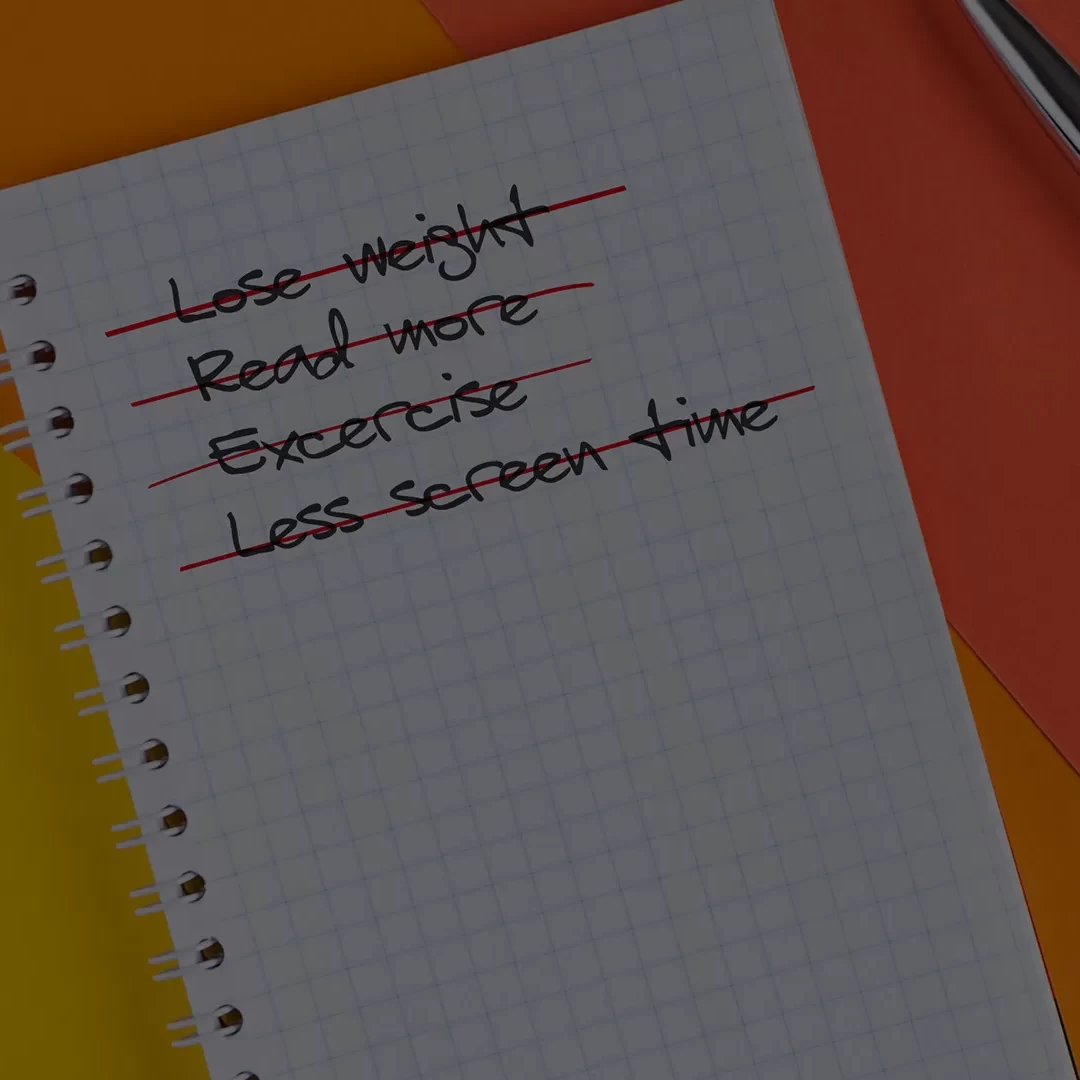 Lose weight
Read more
Excercise
Less screen time